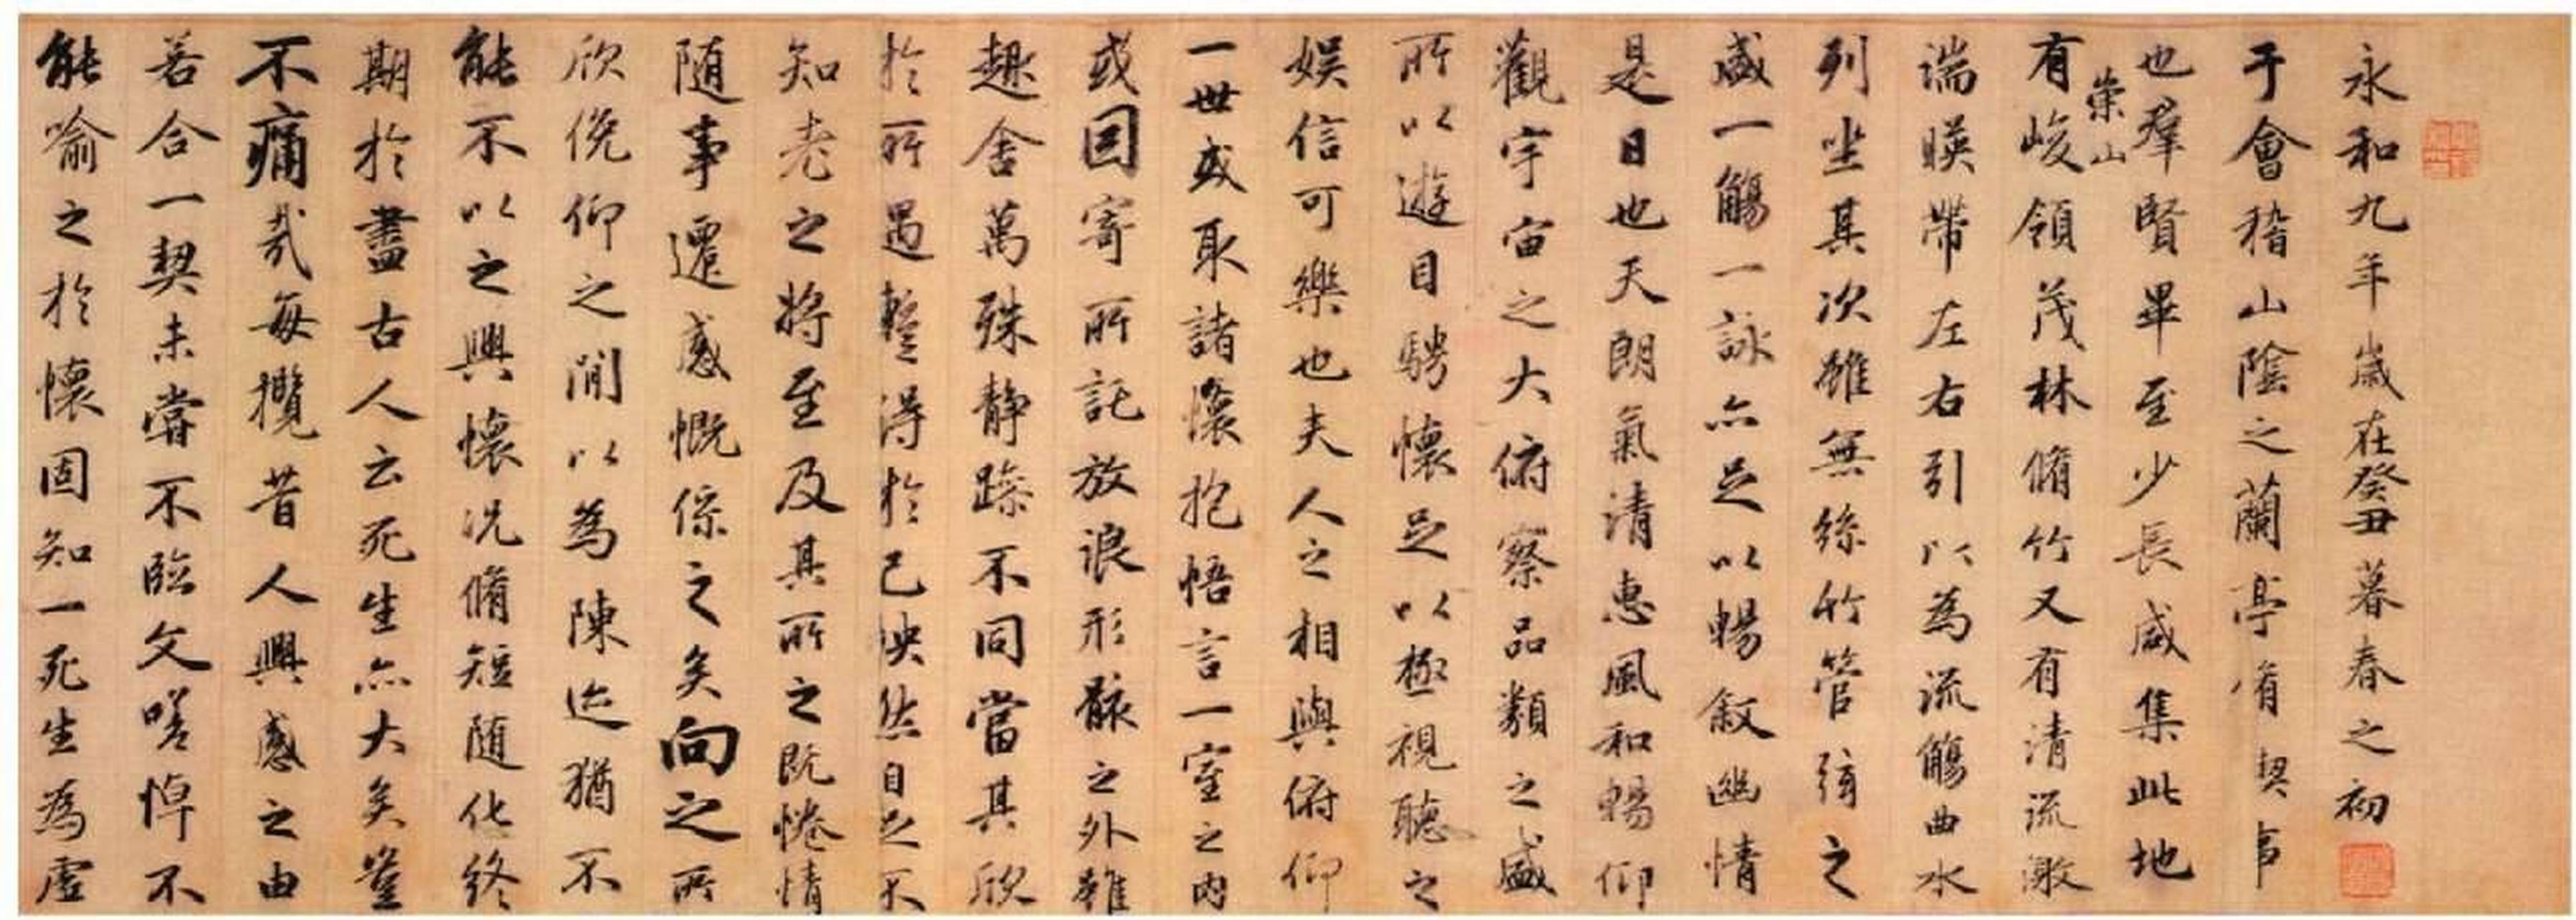 永和九年歲在癸丑暮春之初
于會稽山陰之蘭亭脩禊事
也羣賢畢至少長咸集此地
崇山
有峻領茂林脩竹又有清流激
湍暎帶左右引以為流觴曲水
列坐其次雖無絲竹管弦之
盛一觴一詠亦足以暢敘幽情
是日也天朗氣清惠風和暢仰
觀宇宙之大俯察品類之盛
所以遊目騁懷足以極視聽之
娛信可樂也夫人之相與俯仰
一世或取諸懷抱悟言一室之內
或因寄所託放浪形骸之外雖
趣舍萬殊靜躁不同當其欣
於所遇暫得於己怏然自足不
知老之將至及其所之既惓情
隨事遷感慨係之矣向之所
欣俛仰之閒以為陳迹猶不
能不以之興懷況脩短隨化終
期於盡古人云死生亦大矣豈
不痛哉每攬昔人興感之由
若合一契未嘗不臨文嗟悼不
能喻之於懷固知一死生為虛